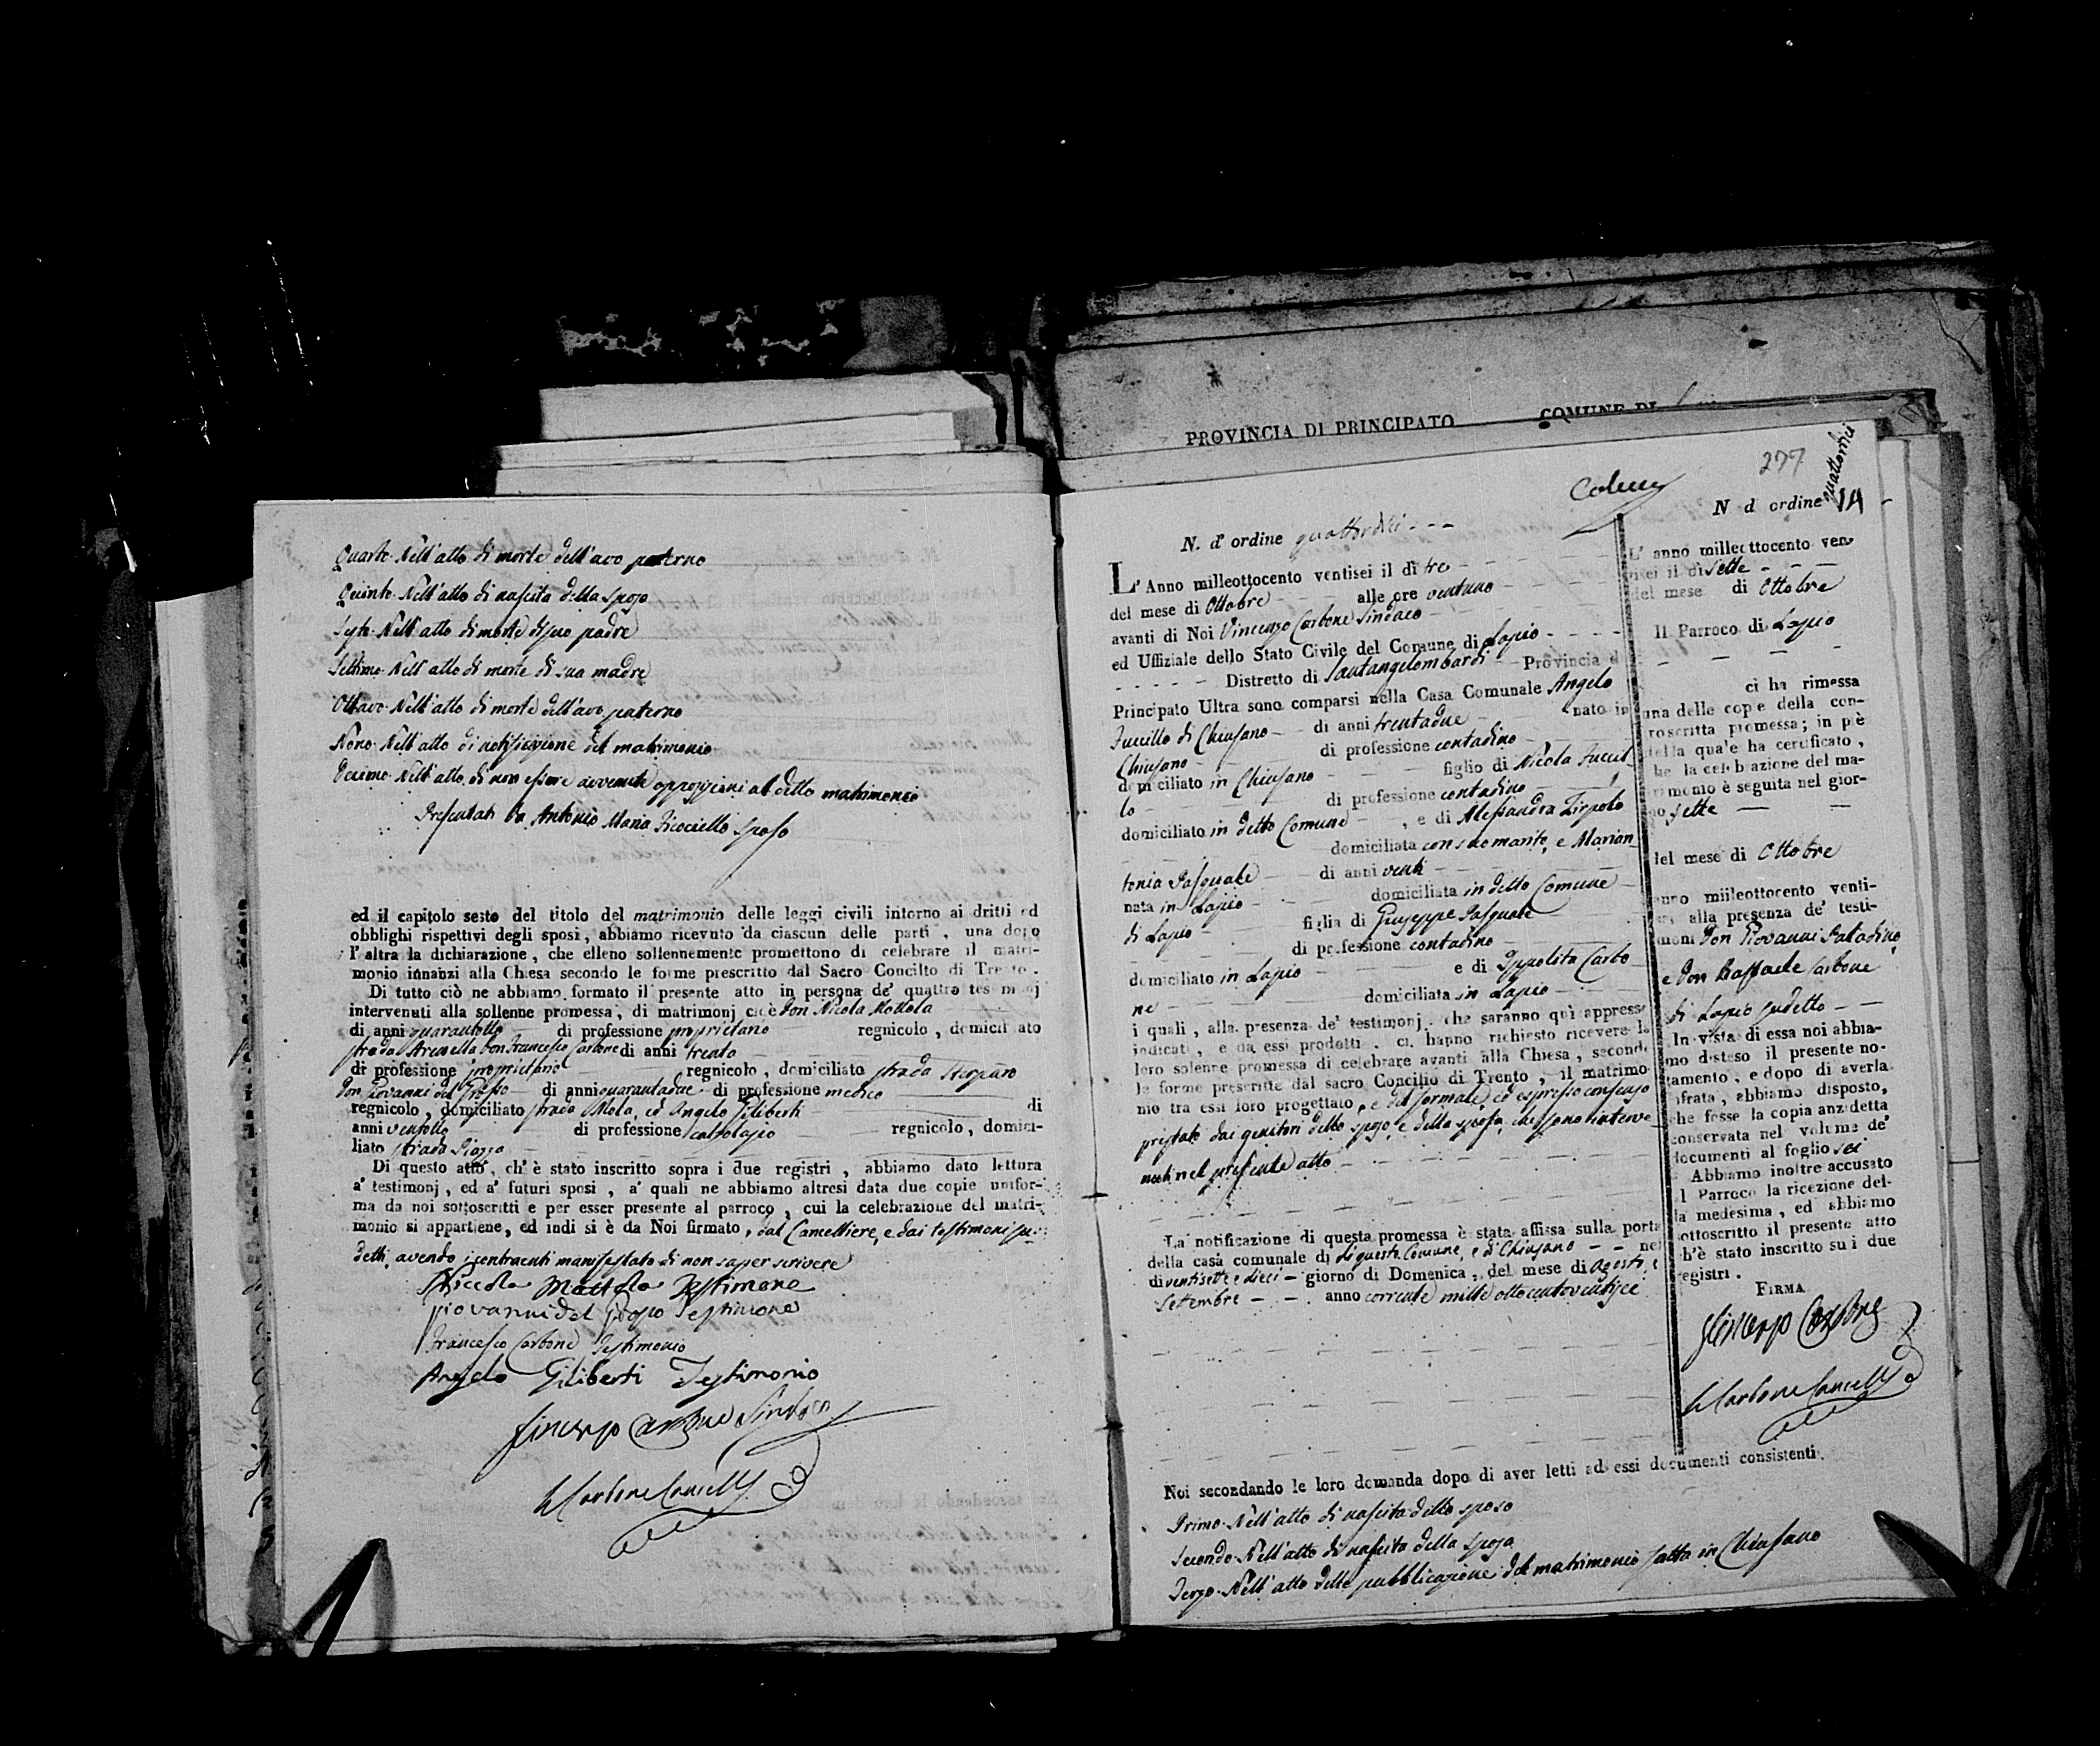 Quarto. Nell'atto di morte dell'avo paterno
Quinto. Nell'atto di nascita della sposa
Sesto. Nell'atto di morte di suo padre
Settimo. Nell'atto di morte di sua madre
Ottavo. Nell'atto di morte dell'avo paterno
Nono. Nell'atto di notificazione del matrimonio
Decimo. Nell'atto di non essere avvenute opposizioni al detto matrimonio
Presentati da Antonio Maria sposo
ed il capitolo sesto del titolo del matrimonio delle leggi civili intorno ai dritti ed
obblighi rispettivi degli sposi, abbiamo ricevuto da ciascun delle parti, una dopo
l'altra la dichiarazione, che elleno sollennemente promettono di celebrare il matri-
monio innanzi alla Chiesa secondo le forme prescritto dal Sacro Concilto di Trento.
Di tutto ciò ne abbiamo formato il presente atto in persona de' quattro testimonj
intervenuti alla sollenne promessa, di matrimonj cioè Don Nicola Mottola
di anni quarantotto di professione proprietario regnicolo, domiciliato
strada Don Francesco Carbone di anni trenta
di professione proprietario regnicolo, domiciliato strada
Don Giovanni del Grosso di anni quarantadue di professione medico
regnicolo, domiciliato strada Mola, ed Angelo Giliberti di
anni ventotto di professione calzolajo regnicolo, domici-
liato strada Piazza
Di questo atto, ch'è stato inscritto sopra i due registri, abbiamo dato lettura
a' testimonj, ed a' futuri sposi, a' quali ne abbiamo altresì data due copie unifor-
ma da noi sottoscritti e per esser presente al parroco, cui la celebrazione del matri-
monio si appartiene, ed indi si è da Noi firmato, dal Cancelliere, e dai testimoni su-
detti, avendo i contraenti manifestato di non saper scrivere
Niccola Mottola Testimone
Giovanni del Grosso Testimone
Francesco Carbone Testimonio
Angelo Giliberti Testimonio
Vincenzo Carbone Sindaco
Carbone Cancell.
PROVINCIA DI PRINCIPATO COMUNE DI
277
quattordici
N. d'ordine quattordici
L'Anno milleottocento ventisei il dì tre
del mese di Ottobre alle ore ventuno
avanti di Noi Vincenzo Carbone Sindaco
ed Uffiziale dello Stato Civile del Comune di Lapio
Distretto di Santangelombardi Provincia di
Principato Ultra sono comparsi nella Casa Comunale Angelo
Juccillo di Chiusano di anni trentadue nato in
Chiusano di professione contadino
domiciliato in Chiusano figlio di Nicola Juccil-
lo di professione contadino
domiciliato in detto Comune, e di Alessandra Tirpolo
domiciliata con suo marito, e Marian-
tonia Pasquale di anni venti
nata in Lapio domiciliata in detto Comune
di Lapio figlia di Giuseppe Pasquale
di professione contadino
domiciliato in Lapio e di Ippolita Carbo-
ne domiciliata in Lapio
i quali, alla presenza de' testimonj che saranno quì appresso
indicati, e da essi prodotti, ci hanno richiesto ricevere la
loro solenne promessa di celebrare avanti alla Chiesa, secondo
le forme prescritte dal sacro Concilio di Trento, il matrimo-
nio tra essi loro progettato, e dal formale, ed espresso consenso
prestato dai genitori dello sposo, e della sposa, che sono interve-
nuti nel presente atto
La notificazione di questa promessa è stata affissa sulla porta
della casa comunale di di questo Comune, e di Chiusano nei
dì ventisette e dieci giorno di Domenica, del mese di Agosto, e
Settembre anno corrente mille ottocentoventisei
Noi secondando le loro domanda dopo di aver letti ad essi documenti consistenti:
Primo. Nell'atto di nascita dello sposo
Secondo. Nell'atto di nascita della sposa
Terzo. Nell'atto delle pubblicazione del matrimonio fatta in Chiusano
N d ordine 14
L' anno milleottocento ven-
tisei il dì sette
del mese di Ottobre
Il Parroco di Lapio
ci ha rimessa
una delle copie della con-
troscritta promessa; in piè
della quale ha certificato,
che la celebrazione del ma-
trimonio è seguita nel gior-
no sette
del mese di Ottobre
anno milleottocento venti-
sei alla presenza de' testi-
moni Don Giovanni Paladino
e Don Raffaele Carbone
di Lapio sudetto
In vista di essa noi abbia-
mo disteso il presente no-
tamento, e dopo di averla
cifrata, abbiamo disposto,
che fosse la copia anzidetta
conservata nel volume de'
documenti al foglio sei
Abbiamo inoltre accusato
al Parroco la ricezione del-
la medesima, ed abbiamo
sottoscritto il presente atto
ch'è stato inscritto su i due
registri.
FIRMA
Vincenzo Carbone
Carbone Cancell.